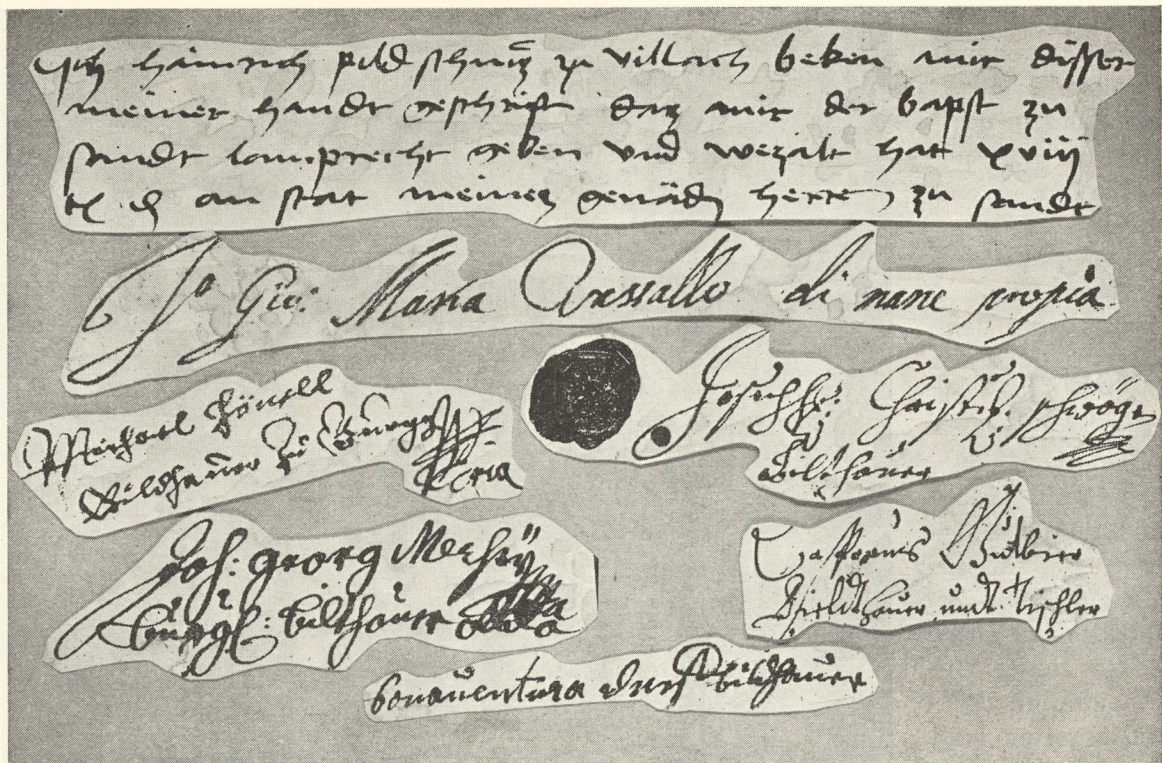 Ich hainrich pildschniczer zu villach beken mit disser
meiner handt geschrift daz mir der bapst zu
sandt lamprecht geben vnd wezalt hat xviij
an stat meinez genädn herren zu sandt
Jo Gio: Maria Vassallo di mane propia
Michael Hönell
Bildhauer zu Gurgg
Josephus Christoph: schwögr
Bilthauer
Joh: georg Mersÿ
burgl: bilthauer
Casparus
Bieldthauer undt tischler
bonauentura bildhauer